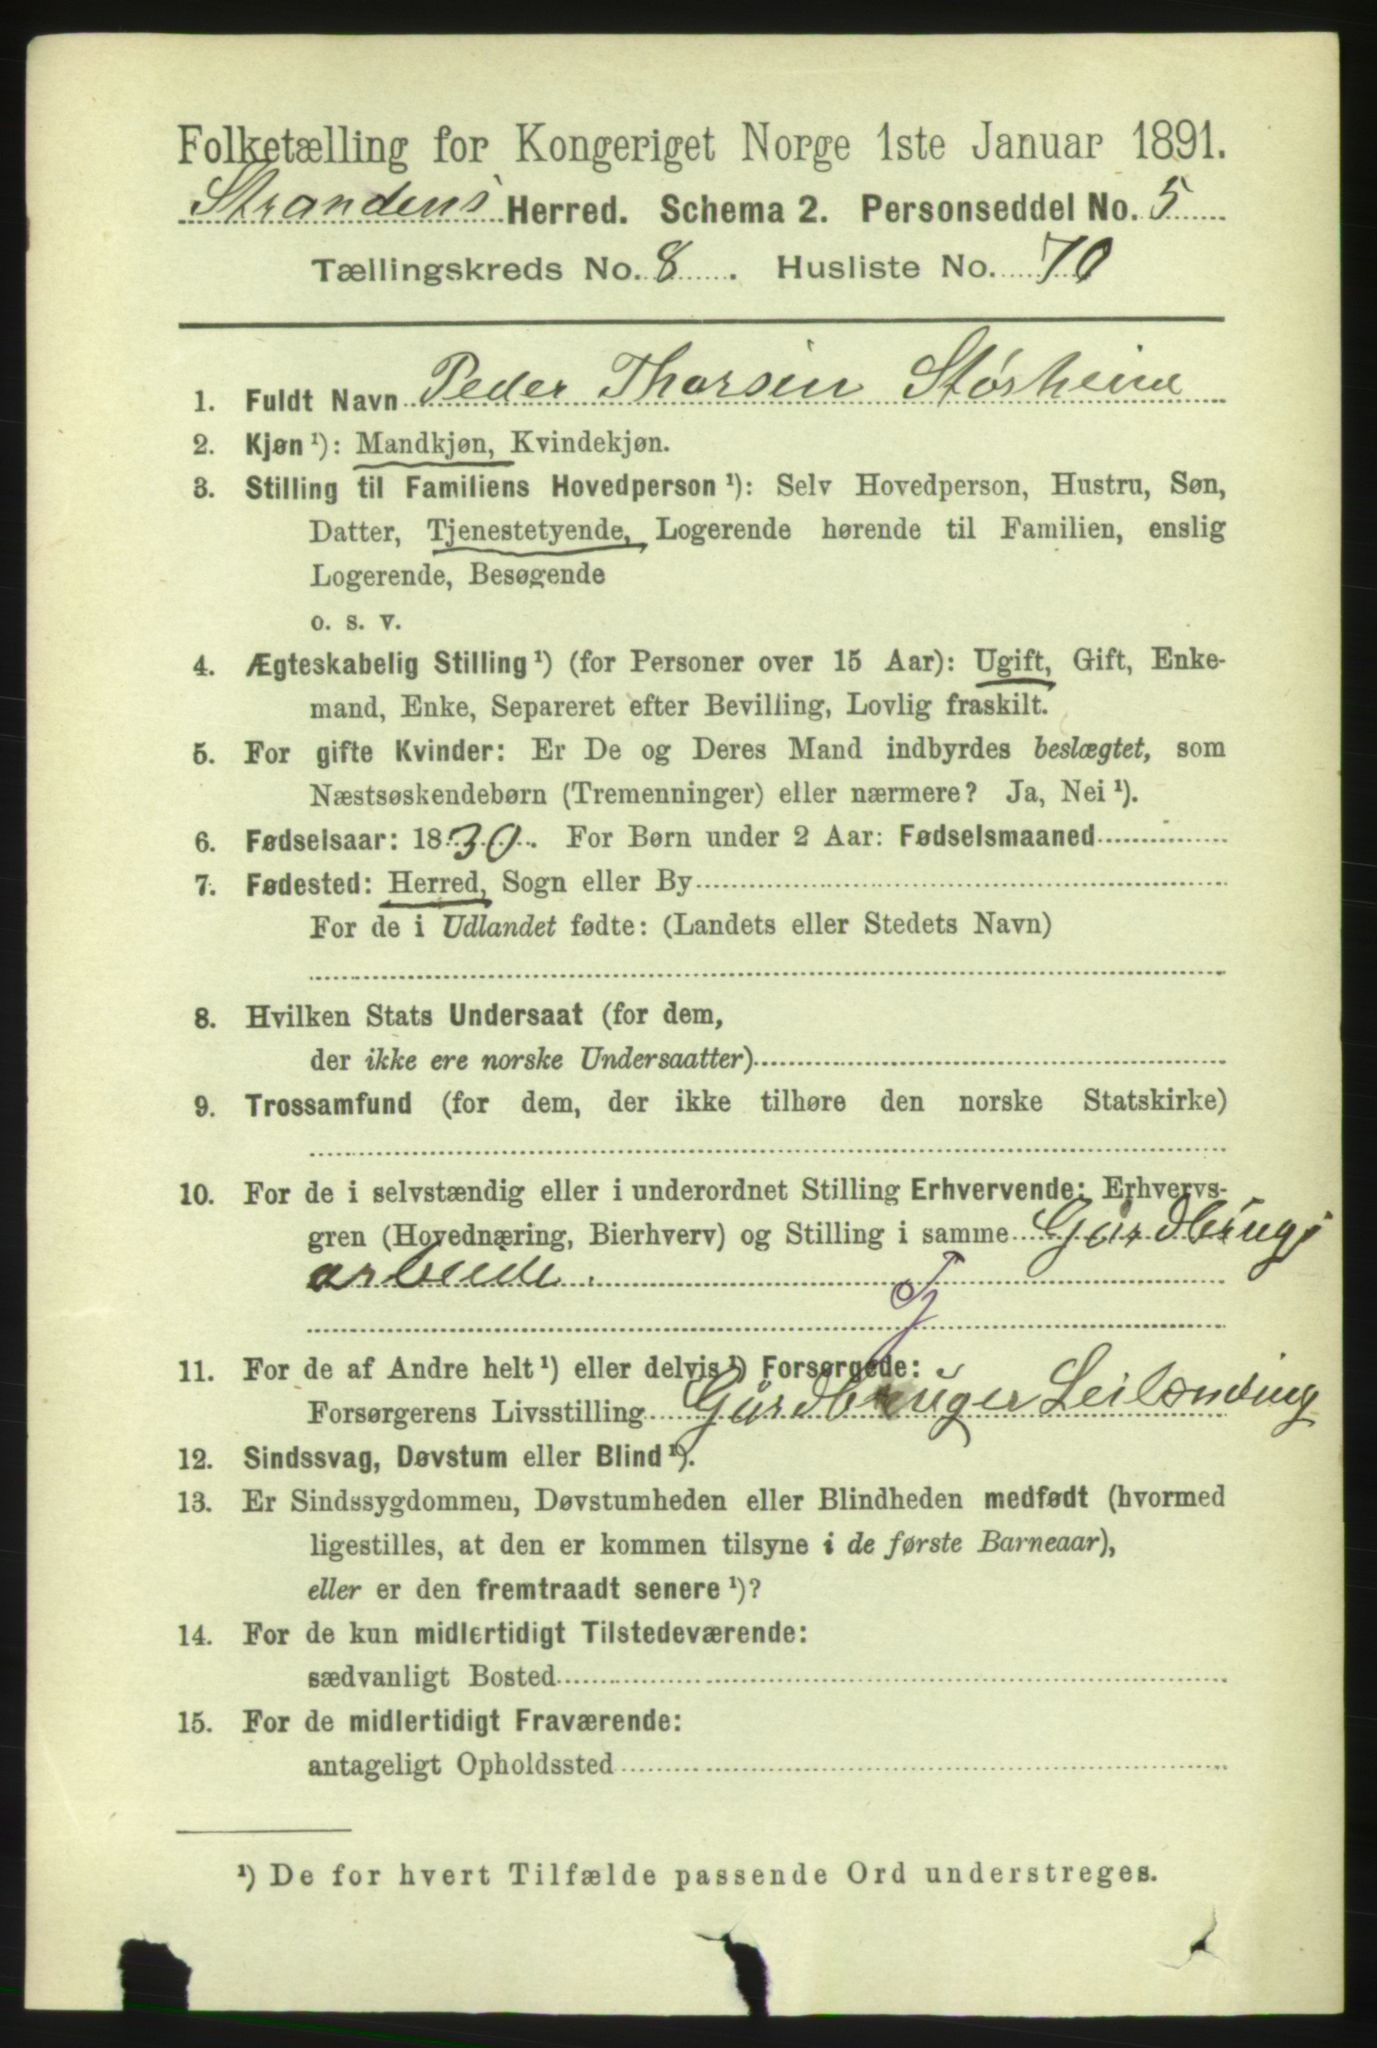 Folketælling for Kongeriget Norge 1ste Januar 1891.
Strandens Herred. Schema 2. Personseddel No. 5
Tællingskreds No. 8. Husliste No. 70
1. Fuldt Navn Peder Thorsen Størheim
2. Kjøn ¹): Mandkjøn, Kvindekjøn.
3. Stilling til Familiens Hovedperson ¹): Selv Hovedperson, Hustru, Søn,
Datter, Tjenestetyende, Logerende hørende til Familien, enslig
Logerende, Besøgende
o. s. v.
4. Ægteskabelig Stilling ¹) (for Personer over 15 Aar): Ugift, Gift, Enke-
mand, Enke, Separeret efter Bevilling, Lovlig fraskilt.
5. For gifte Kvinder: Er De og Deres Mand indbyrdes beslægtet, som
Næstsøskendebørn (Tremenninger) eller nærmere? Ja, Nei ¹).
6. Fødselsaar: 1830. For Børn under 2 Aar: Fødselsmaaned
7. Fødested: Herred, Sogn eller By
For de i Udlandet fødte: (Landets eller Stedets Navn)
8. Hvilken Stats Undersaat (for dem,
der ikke ere norske Undersaatter)
9. Trossamfund (for dem, der ikke tilhøre den norske Statskirke)
10. For de i selvstændig eller i underordnet Stilling Erhvervende: Erhvervs-
gren (Hovednæring, Bierhverv) og Stilling i samme Gårdbrugs
arbeide.
11. For de af Andre helt ¹) eller delvis ¹) Forsørgede:
Forsørgerens Livsstilling Gårdbruger Leilænding
12. Sindssvag, Døvstum eller Blind ¹).
13. Er Sindssygdommen, Døvstumheden eller Blindheden medfødt (hvormed
ligestilles, at den er kommen tilsyne i de første Barneaar),
eller er den fremtraadt senere ¹)?
14. For de kun midlertidigt Tilstedeværende:
sædvanligt Bosted
15. For de midlertidigt Fraværende:
antageligt Opholdssted
¹) De for hvert Tilfælde passende Ord understreges.